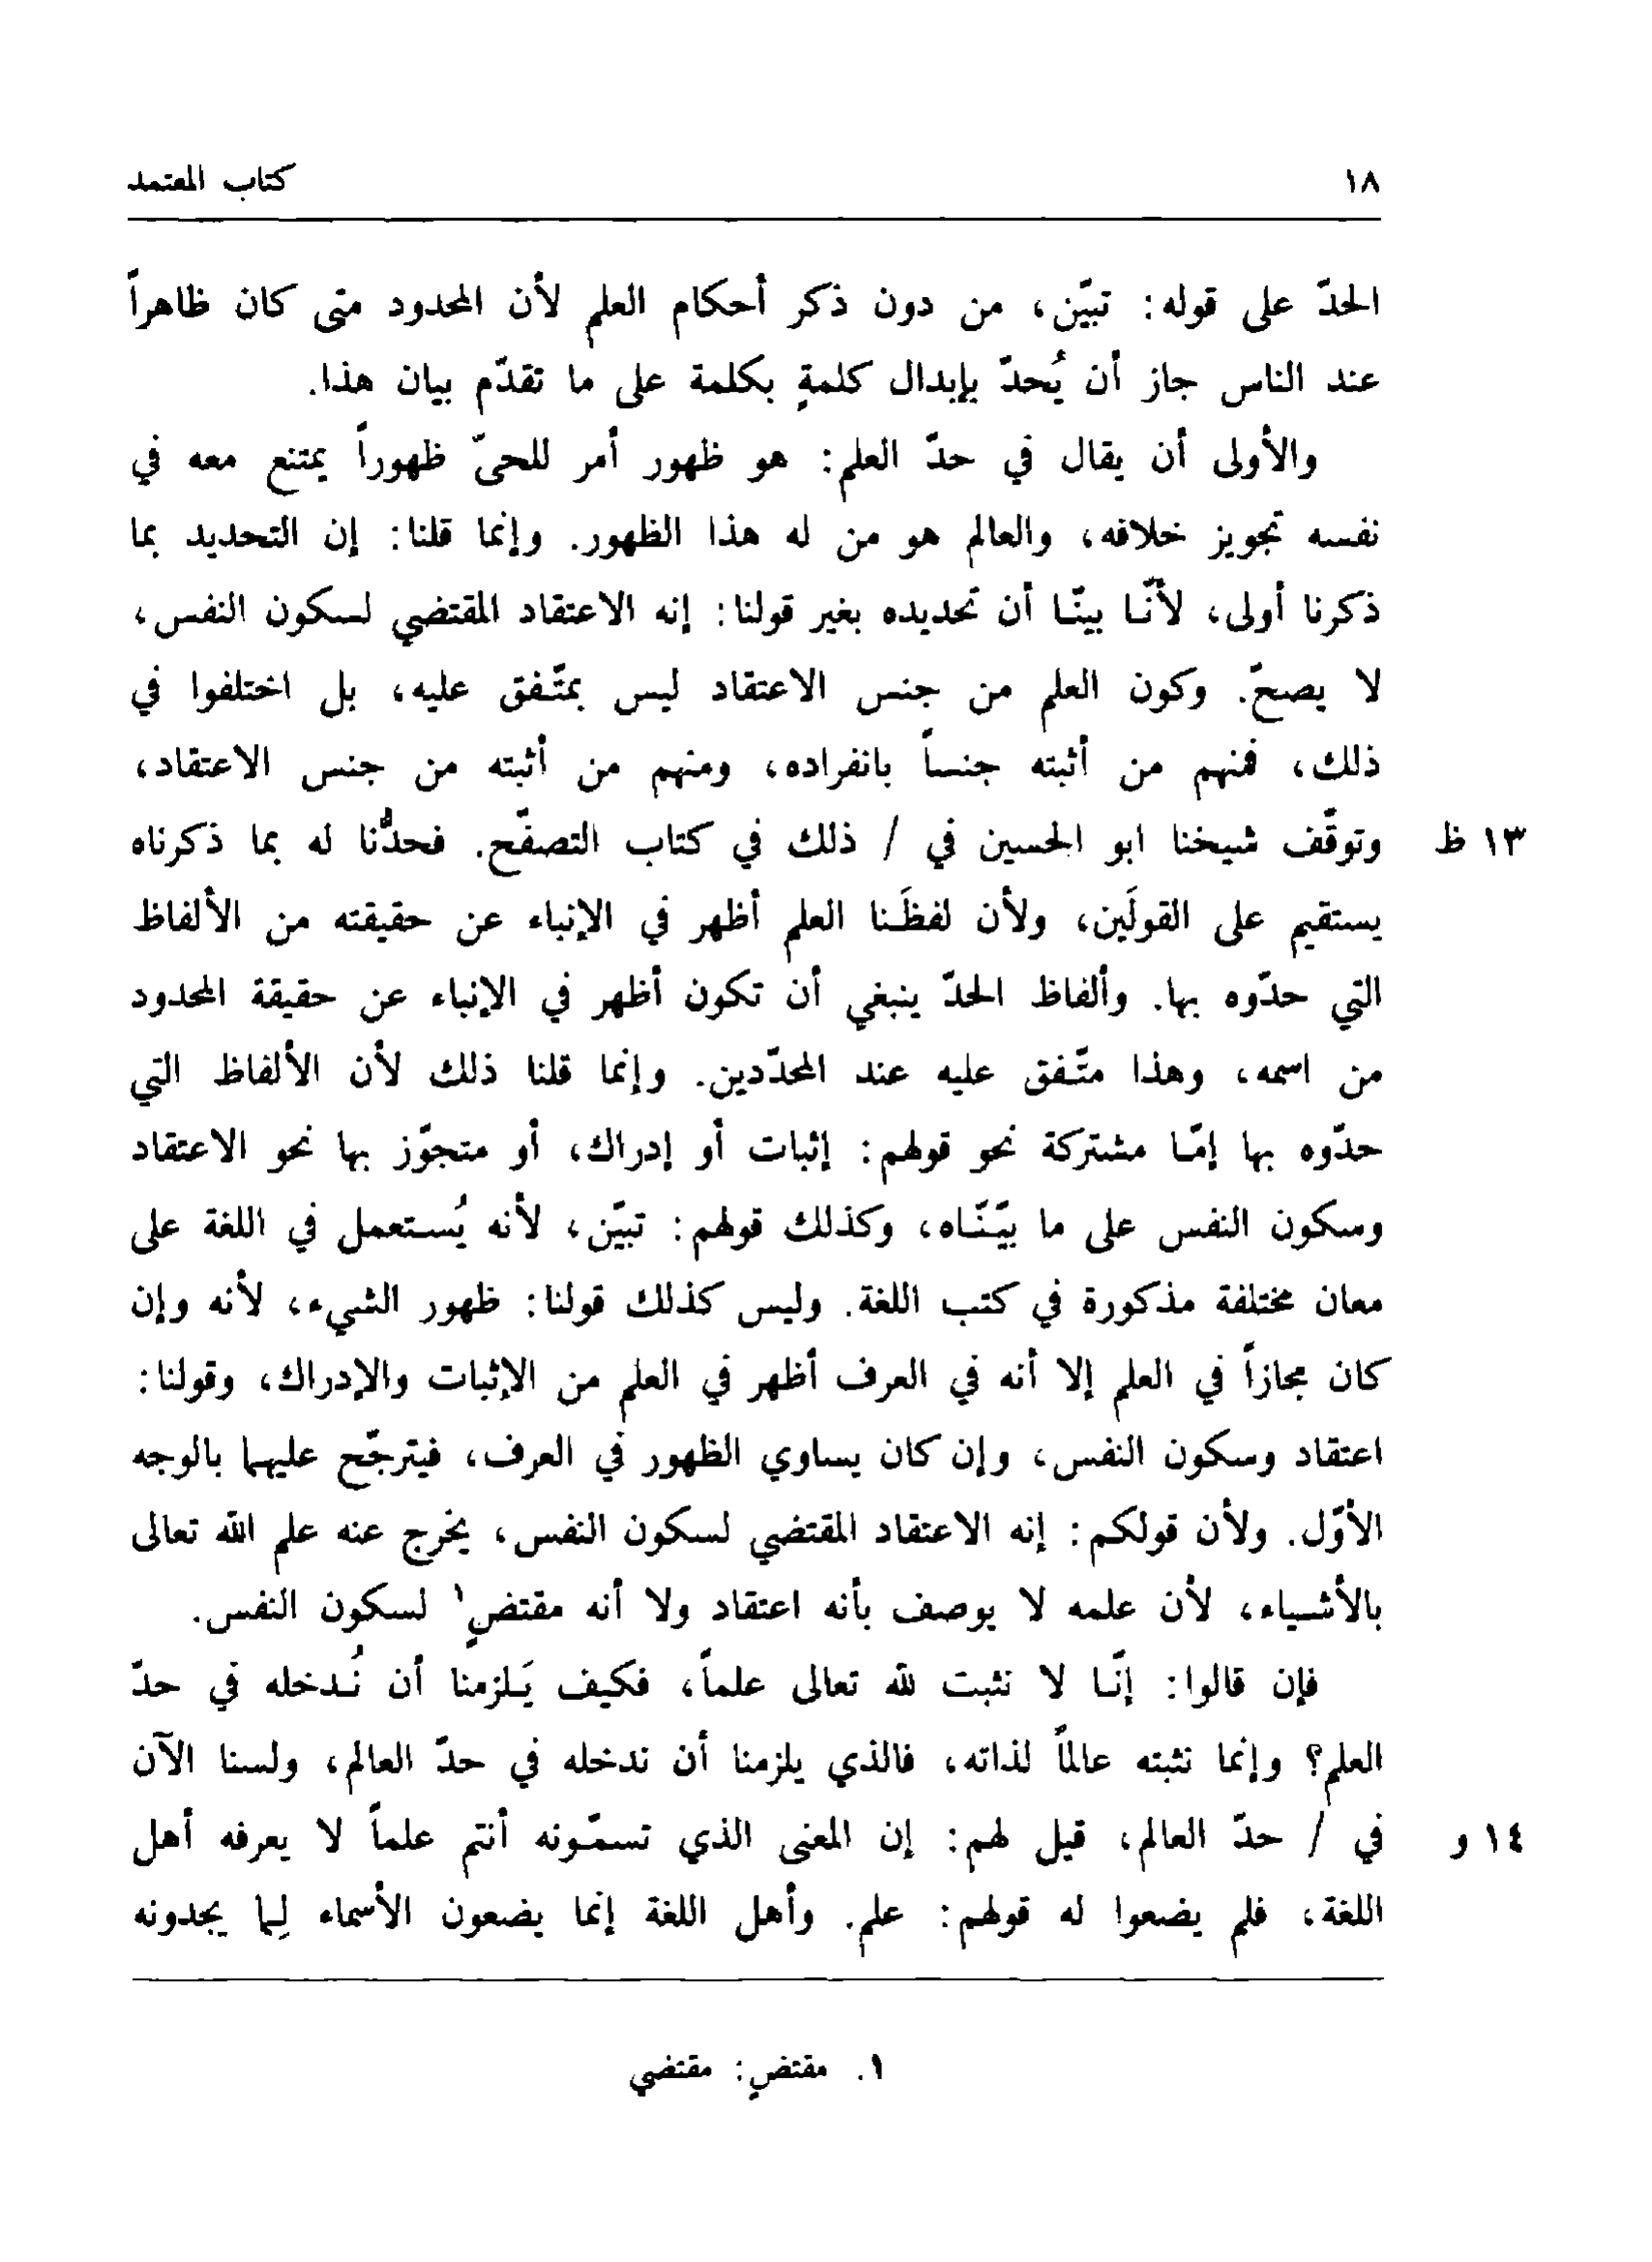 ١٨ كتاب المعتمد
الحدّ على قوله: تبيّن، من دون ذكر أحكام العلم لأن المحدود متى كان ظاهراً
عند الناس جاز أن يُحدّ بإبدال كلمةٍ بكلمة على ما تقدّم بيان هذا.
والأولى أن يقال في حدّ العلم: هو ظهور أمر للحىّ ظهوراً يمتنع معه في
نفسه تجويز خلافه، والعالم هو من له هذا الظهور. وإنما قلنا: إن التحديد بما
ذكرنا أولى، لأنّا بينّا أن تحديده بغير قولنا: إنه الاعتقاد المقتضي لسكون النفس،
لا يصحّ. وكون العلم من جنس الاعتقاد ليس بمتّفق عليه، بل اختلفوا في
ذلك، فمنهم من أثبته جنساً بانفراده، ومنهم من أثبته من جنس الاعتقاد،
وتوقّف شيخنا ابو الحسين في / ذلك في كتاب التصفّح. فحدُّنا له بما ذكرناه ١٣ ظ
يستقيم على القولَين، ولأن لفظَنا العلم أظهر في الإنباء عن حقيقته من الألفاظ
التي حدّوه بها. وألفاظ الحدّ ينبغي أن تكون أظهر في الإنباء عن حقيقة المحدود
من اسمه، وهذا متّفق عليه عند المحدّدين. وإنما قلنا ذلك لأن الألفاظ التي
حدّوه بها إمّا مشتركة نحو قولهم: إثبات أو إدراك، أو متجوّز بها نحو الاعتقاد
وسكون النفس على ما بيّنّاه، وكذلك قولهم: تبيّن، لأنه يُستعمل في اللغة على
معان مختلفة مذكورة في كتب اللغة. وليس كذلك قولنا: ظهور الشيء، لأنه وإن
كان مجازاً في العلم إلا أنه في العرف أظهر في العلم من الإثبات والإدراك، وقولنا:
اعتقاد وسكون النفس، وإن كان يساوي الظهور في العرف، فيترجّح عليهما بالوجه
الأوّل. ولأن قولكم: إنه الاعتقاد المقتضي لسكون النفس، يخرج عنه علم الله تعالى
بالأشياء، لأن علمه لا يوصف بأنه اعتقاد ولا أنه مقتضٍ١ لسكون النفس.
فإن قالوا: إنّا لا نثبت لله تعالى علماً، فكيف يَلزمنا أن نُدخله في حدّ
العلم؟ وإنما نثبته عالماً لذاته، فالذي يلزمنا أن ندخله في حدّ العالم، ولسنا الآن
في / حدّ العالم، قيل لهم: إن المعنى الذي تسمّونه أنتم علماً لا يعرفه أهل ١٤ و
اللغة، فلم يضعوا له قولهم: علم. وأهل اللغة إنما يضعون الأسماء لِما يجدونه
١. مقتضٍ: مقتضي